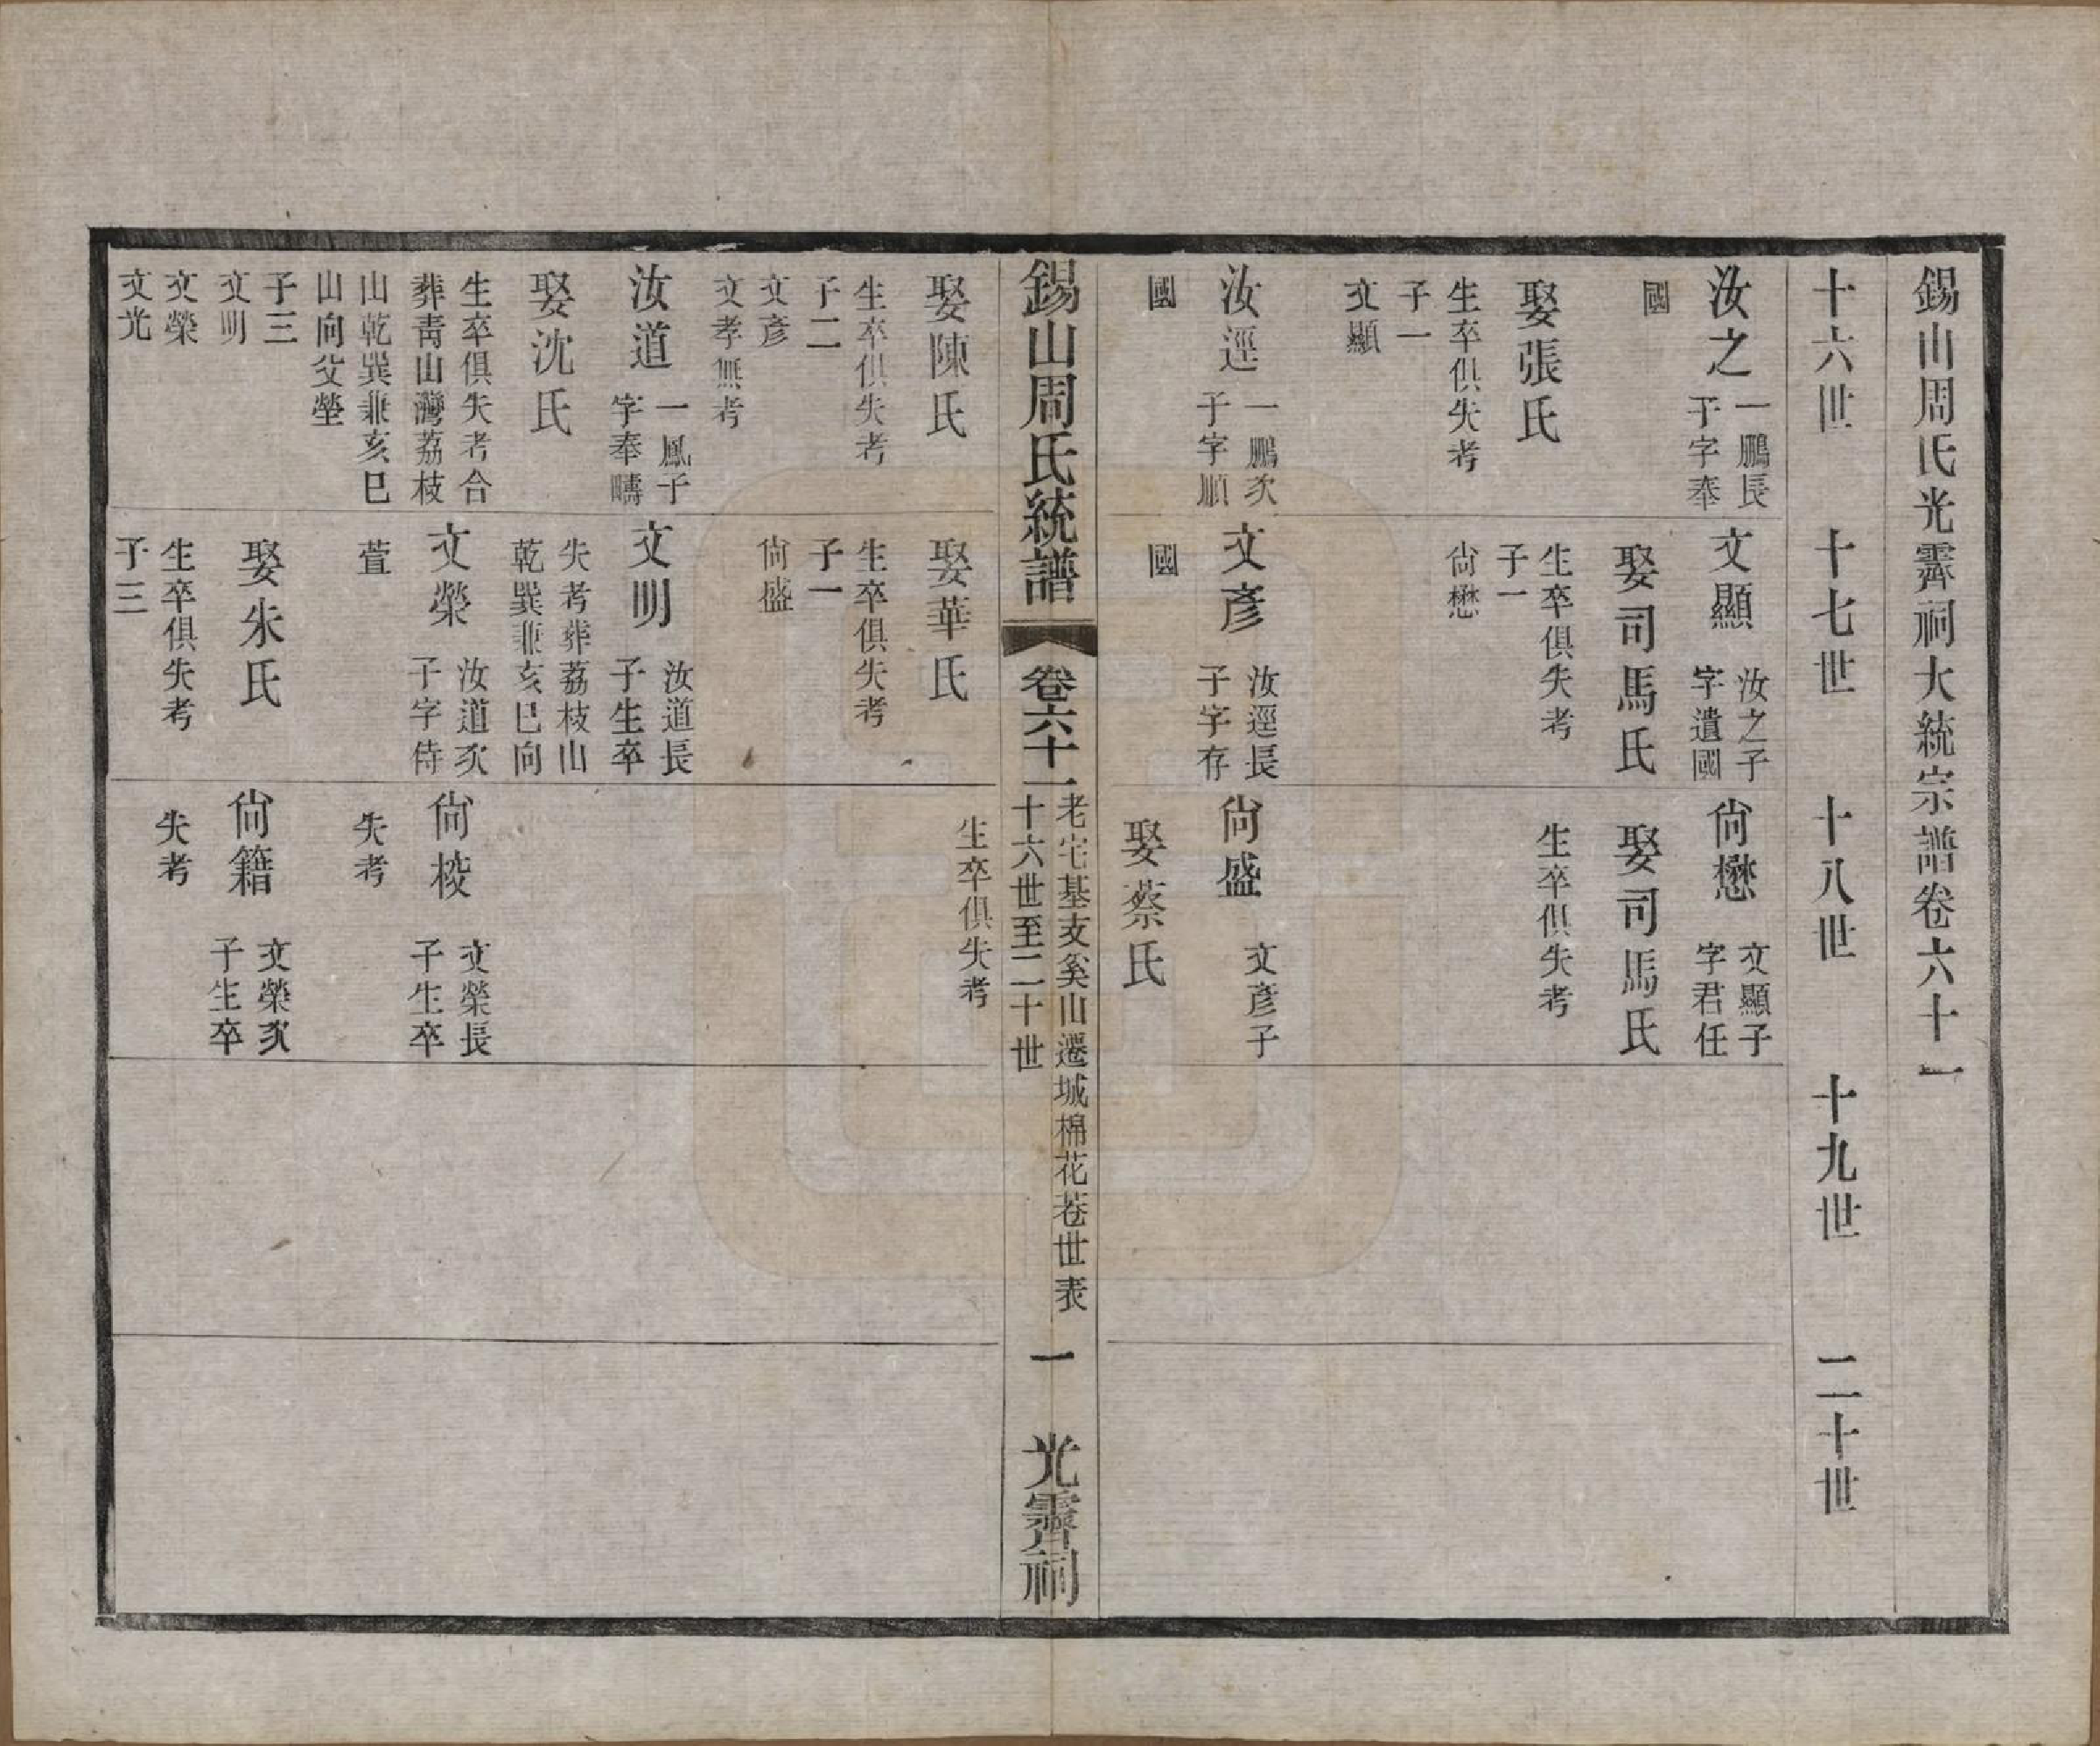 錫山周氏光霽祠大統宗譜卷六十一
十六世
十七世
十八世
十九世
二十世
汝之
一鵬長
子字奉
國
娶張氏
生卒俱失考
子一
文顯
汝逕
一鵬次
子字順
國
文顯
汝之子
字遺國
娶司馬氏
生卒俱失考
子一
尙懋
文彥
汝逕長
子字存
國
尙懋
文顯子
字君任
娶司馬氏
生卒俱失考
尙盛
文彥子
娶蔡氏
錫山周氏統譜
卷六十一
老宅基支奚山遷城棉花巷世表
十六世至二十世
一
光霽祠
娶陳氏
生卒俱失考
子二
文彥
文孝無考
汝道
一鳳子
字奉疇
娶沈氏
生卒俱失考合
葬靑山灣荔枝
山乾巽兼亥巳
山向父塋
子三
文明
文榮
文光
娶華氏
生卒俱失考
子一
尙盛
文明
汝道長
子生卒
失考葬荔枝山
乾巽兼亥巳向
文榮
汝道次
子字侍
萱
娶朱氏
生卒俱失考
子三
生卒俱失考
尙棱
文榮長
子生卒
失考
尙籍
文榮次
子生卒
失考